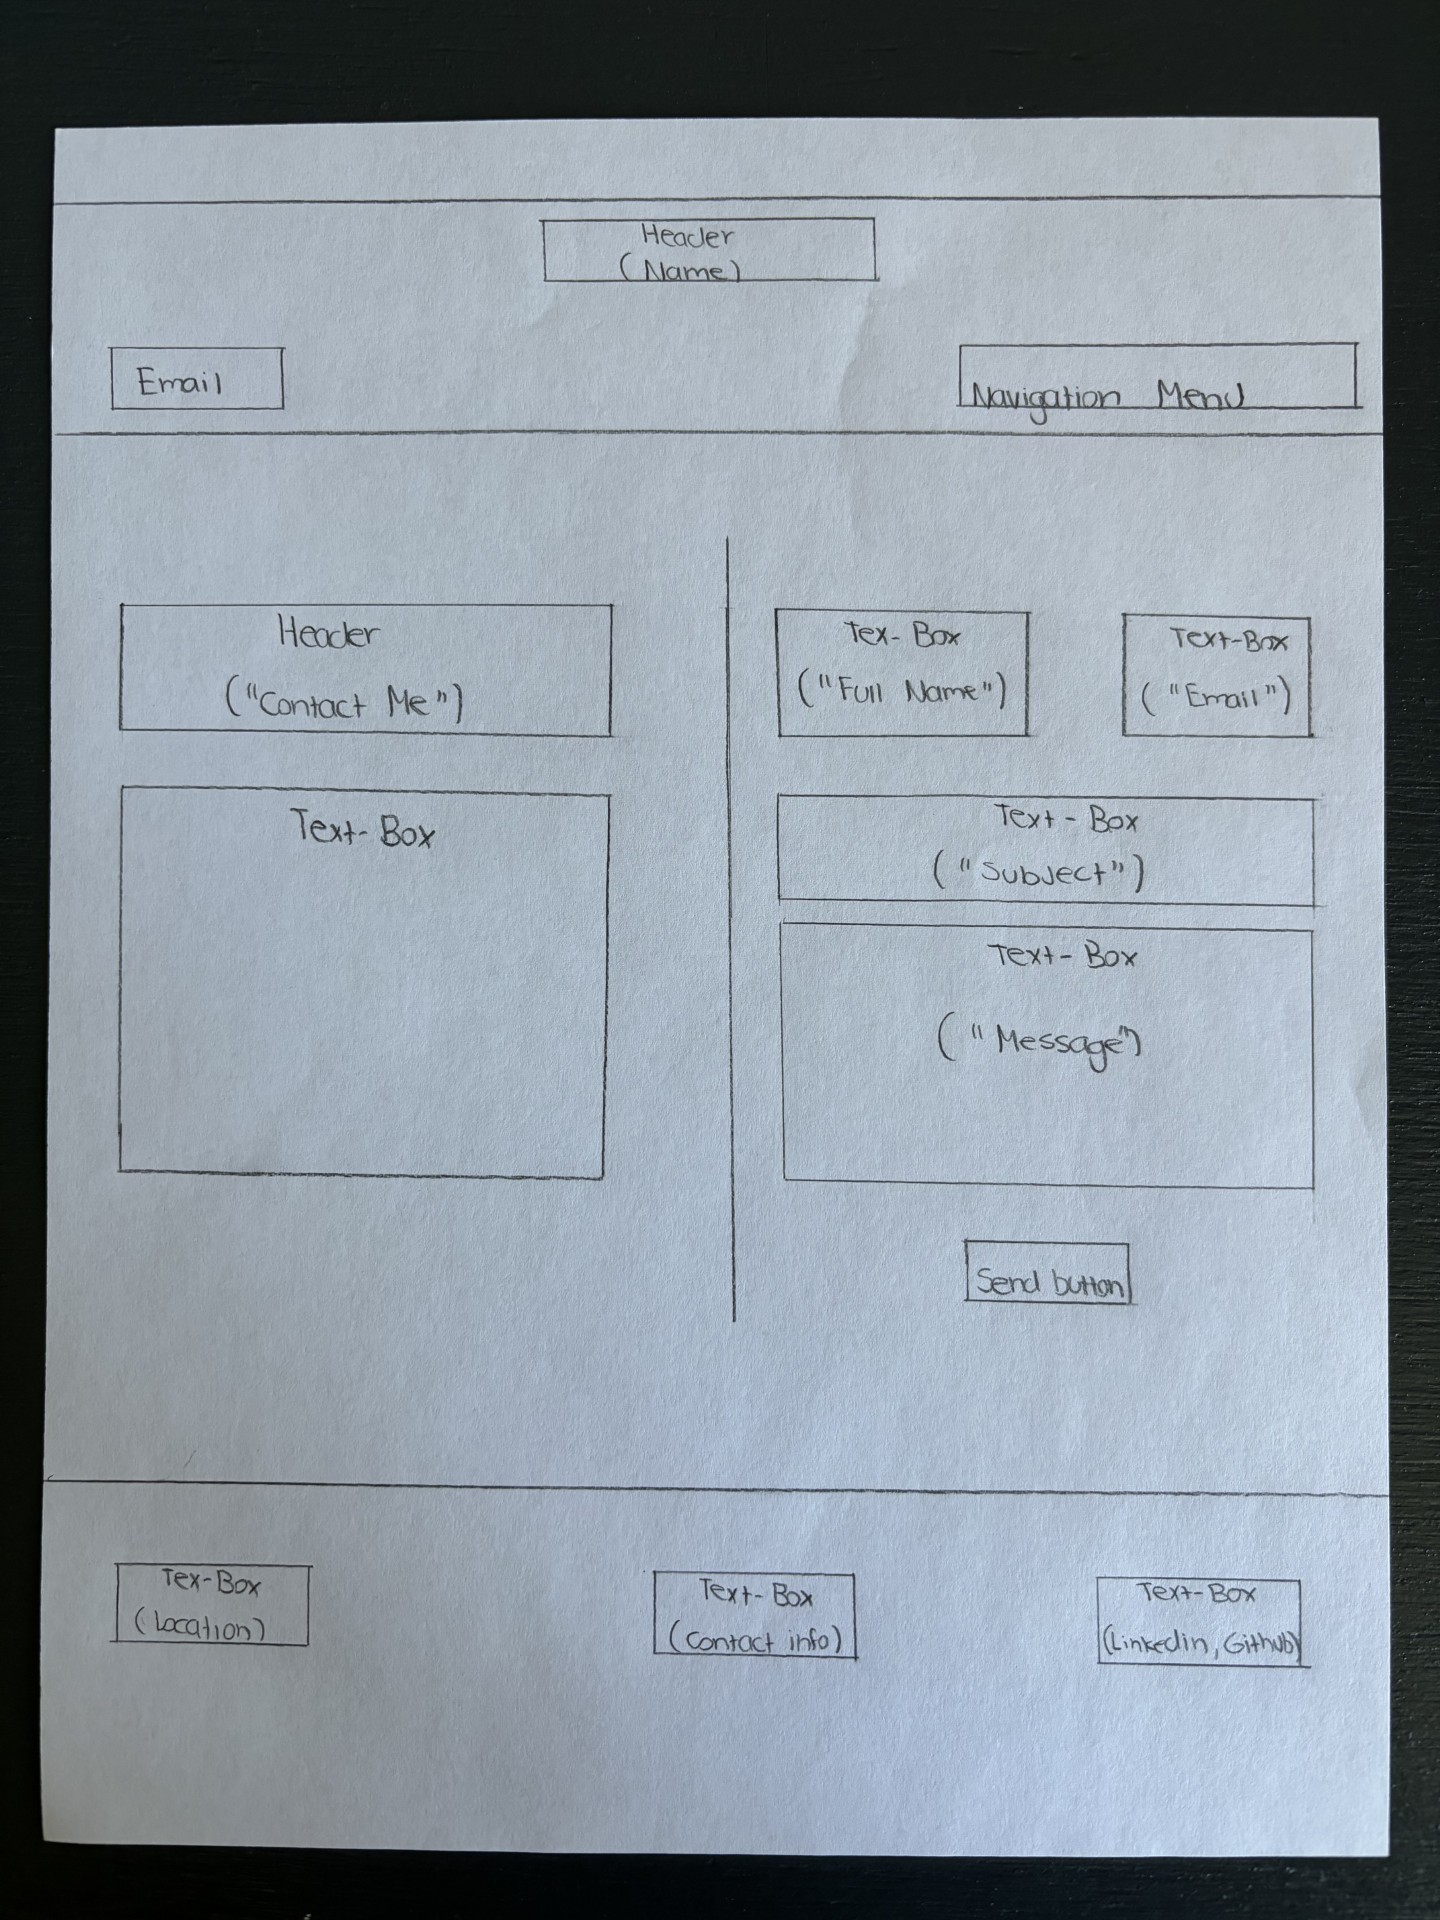 Header
(Name)
Email
Navigation Menu
Header
("Contact Me")
Text-Box
Tex-Box
("Full Name")
Text-Box
("Email")
Text-Box
("Subject")
Text-Box
("Message")
Send button
Tex-Box
(Location)
Text-Box
(contact info)
Text-Box
(Linkedin, Github)